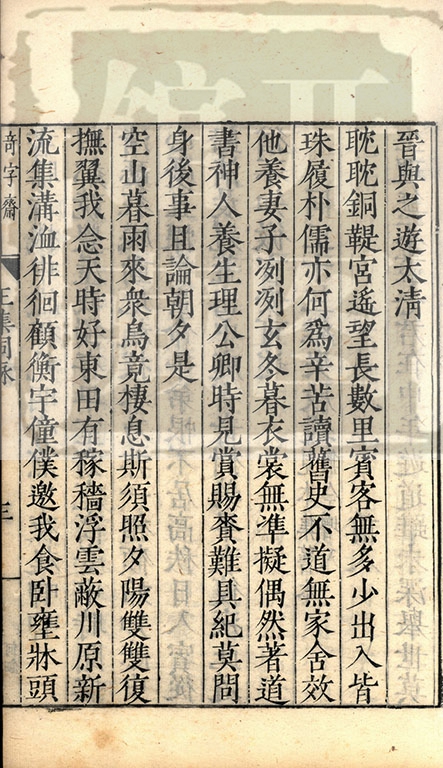 晉與之遊太清
眈眈銅鞮宮遙望長數里賓客無多少出入皆
珠履朴儒亦何爲辛苦讀舊史不道無家舍效
他養妻子冽冽玄冬暮衣裳無準擬偶然著道
書神人養生理公卿時見賞賜賚難具紀莫問
身後事且論朝夕是
空山暮雨來衆鳥竟棲息斯須照夕陽雙雙復
撫翼我念天時好東田有稼穡浮雲蔽川原新
流集溝洫徘徊顧衡宇僮僕邀我食臥壅牀頭
奇字齋
三